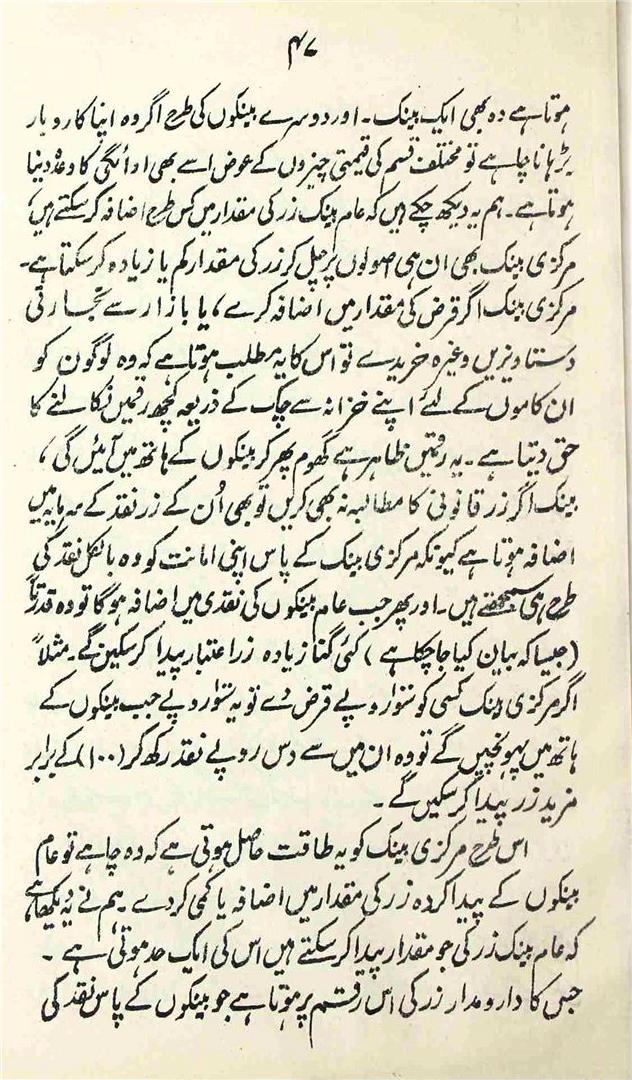 ۴۷
ہوتا ہے وہ بھی ایک بینک۔ اور دوسرے بینکوں کی طرح اگر وہ اپنا کاروبار
بڑہانا چاہے تو مختلف قسم کی قیمتی چیزوں کے عوض اسے بھی ادائگی کا وعدہ دینا
ہوتا ہے۔ ہم یہ دیکھ چکے ہیں کہ عام بینک زر کی مقدار میں کس طرح اضافہ کر سکتے ہیں،
مرکزی بینک بھی ان ہی اصولوں پر چل کر زر کی مقدار کم یا زیادہ کر سکتا ہے۔
مرکزی بینک اگر قرض کی مقدار میں اضافہ کرے، یا بازار سے تجارتی
دستاویزیں وغیرہ خریدے تو اس کا یہ مطلب ہوتا ہے کہ وہ لوگوں کو
ان کاموں کے لئے اپنے خزانہ سے چک کے ذریعہ کچھ رقمیں نکالنے کا
حق دیتا ہے۔ یہ رقمیں ظاہر ہے گھوم پھر کر بینکوں کے ہاتھ میں آئیں گی،
بینک اگر زر قانونی کا مطالبہ نہ بھی کریں تو بھی اُن کے زر نقد کے سرمایہ میں
اضافہ ہوتا ہے کیونکہ مرکزی بینک کے پاس اپنی امانت کو وہ بالکل نقد کی
طرح ہی سمجھتے ہیں۔ اور پھر جب عام بینکوں کی نقدی میں اضافہ ہوگا تو وہ قدرتاً
(جیسا کہ بیان کیا جا چکا ہے) کئی گنا زیادہ زر اعتبار پیدا کر سکیں گے۔ مثلاً
اگر مرکزی بینک کسی کو سَو روپے قرض دے تو یہ سَو روپے جب بینکوں کے
ہاتھ میں پہونچیں گے تو وہ ان میں سے دس روپے نقد رکھ کر (۱۰۰) کے برابر
مزید زر پیدا کر سکیں گے۔
اس طرح مرکزی بینک کو یہ طاقت حاصل ہوتی ہے کہ وہ چاہے تو عام
بینکوں کے پیدا کردہ زر کی مقدار میں اضافہ یا کمی کر دے ہم نے یہ دیکھا ہے
کہ عام بینک زر کی جو مقدار پیدا کر سکتے ہیں اس کی ایک حد ہوتی ہے۔
جس کا دارومدار زر کی اس رقم پر ہوتا ہے جو بینکوں کے پاس نقد کی